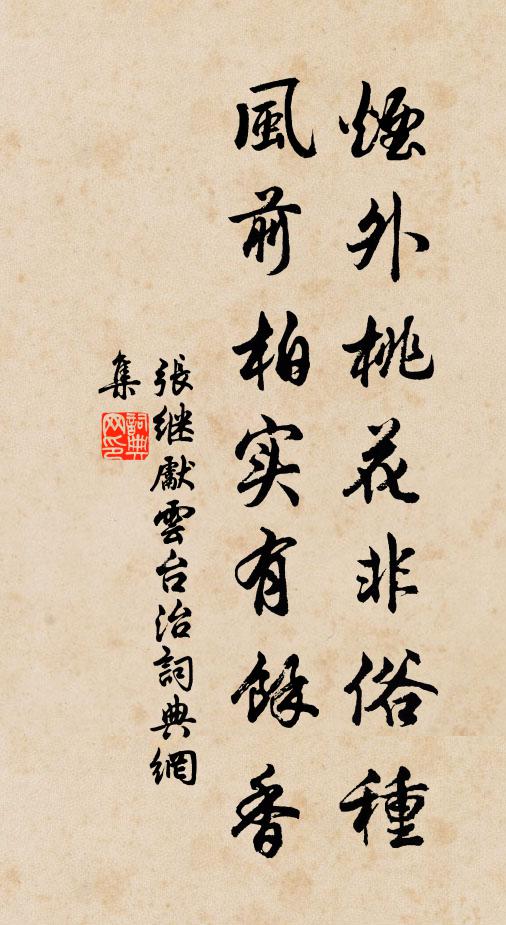 煙外桃花非俗種
風前柏实有餘香
張继獻雲台治詞典網
集
詞典
网印